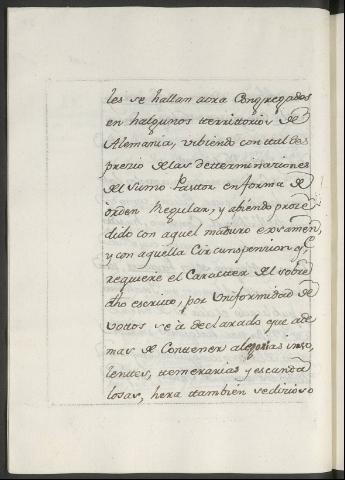 les se hallan aora Congregados
en halgunos tterrittorios de
Alemania, vibiendo con ttal des
prezio de las detterminaciones
del Sumo Pasttor en forma de
orden Regular, y abiendo proze
dido con aquel maduro examen,
y con aquella Circunspenzion q.e
requiere el Caractter del sobre
dho escritto, por Uniformidad de
vottos se à declarado que ade
mas de Conttener alegorias inso,
lenttes, ttemerarias y escanda
losas, hera ttambien sedizioso